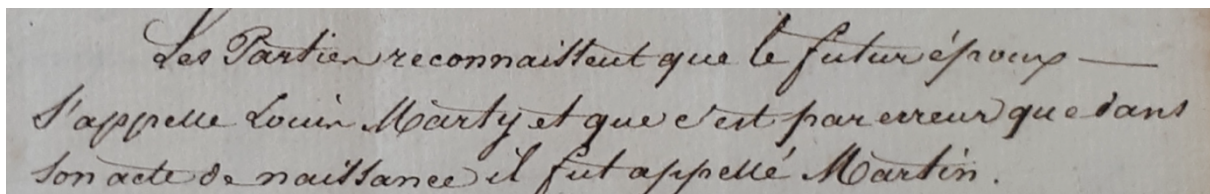 Les Parties reconnaissent que le futur époux —
s'appelle Louis Marty et que c'est par erreur que dans
son acte de naissance il fut appellé Martin.